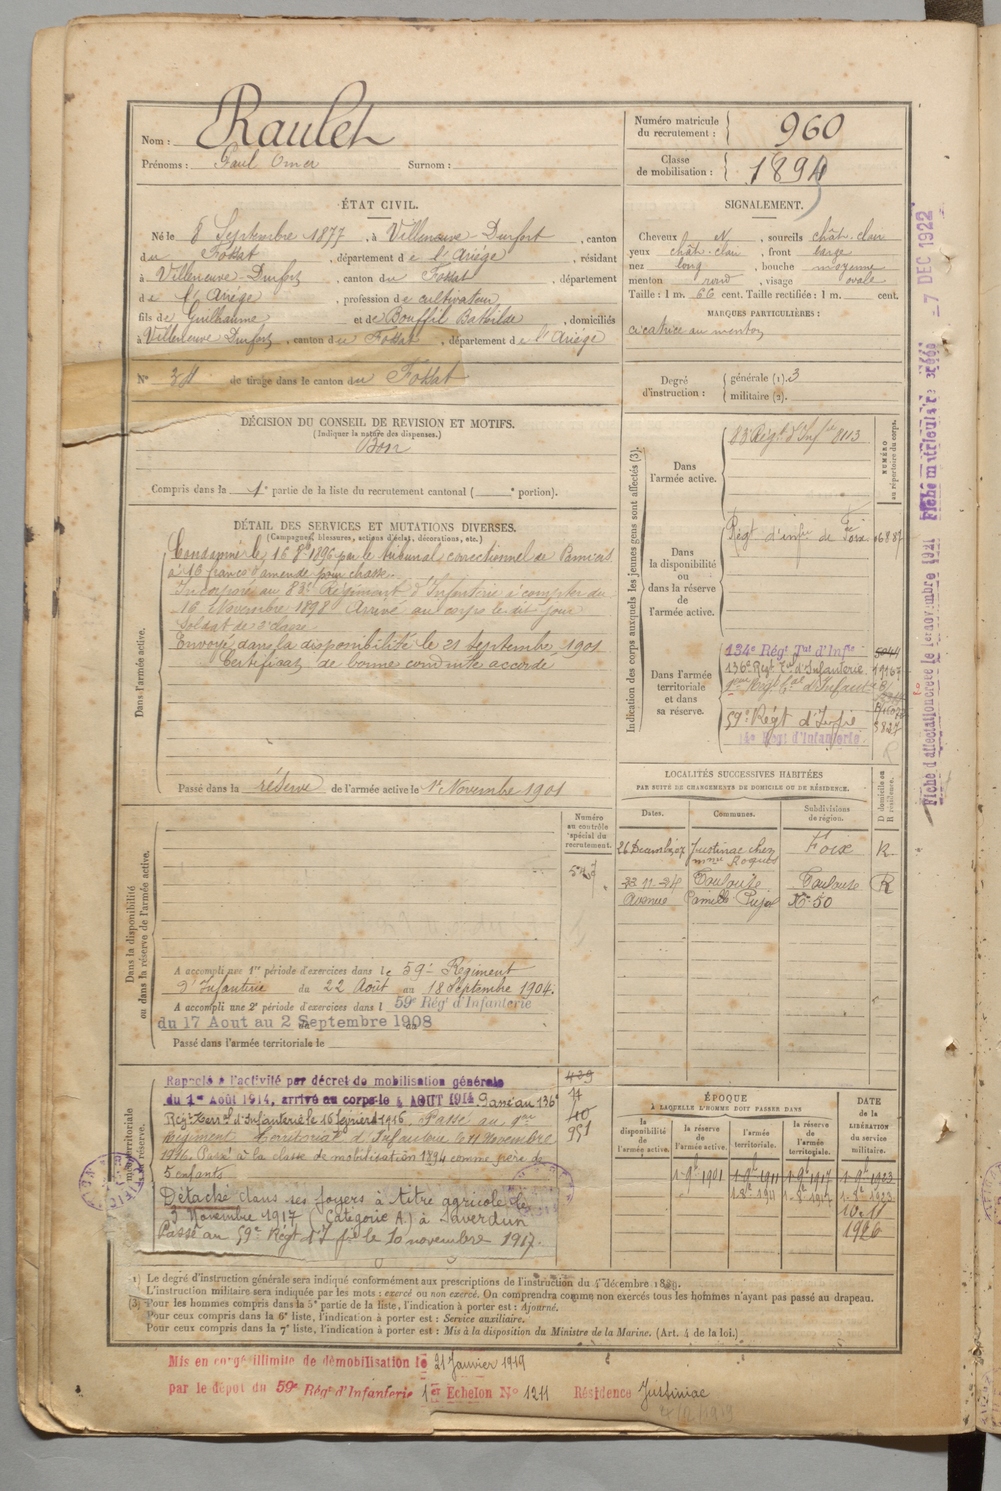 Nom : Raulet
Prénoms : Paul Omer Surnom :
Numéro matricule du recrutement : 960
Classe de mobilisation : 1894
ÉTAT CIVIL.
Né le 8 Septembre 1877, à Villeneuve-Durfort, canton
du Fossat, département de l'Ariège, résidant
à Villeneuve-Durfort, canton du Fossat, département
de l'Ariège, profession de cultivateur,
fils de Guilhaume et de Bouffil Bathilde, domiciliés
à Villeneuve Durfort, canton du Fossat, département de l'Ariège
N° de tirage dans le canton du Fossat
SIGNALEMENT.
Cheveux N, sourcils chât-clair
yeux chât-clair, front large
nez long, bouche moyenne
menton rond, visage ovale
Taille : 1 m. 66 cent. Taille rectifiée : 1 m. cent.
MARQUES PARTICULIÈRES :
cicatrice au menton
Degré d'instruction : générale (1). 3
militaire (2).
DÉCISION DU CONSEIL DE REVISION ET MOTIFS.
(Indiquer la nature des dispenses.)
Bon
Compris dans la 1e partie de la liste du recrutement cantonal ( e portion).
DÉTAIL DES SERVICES ET MUTATIONS DIVERSES.
(Campagnes, blessures, actions d'éclat, décorations, etc.)
Dans l'armée active.
Condamné le 16 1896 par le tribunal correctionnel de Pamiers
à 16 francs d'amende pour chasse.
Incorporé au 83e Régiment d'Infanterie à compter du
16 Novembre 1898 Arrivé au corps le dit jour
Soldat de 2e classe.
Envoyé dans la disponibilité le 21 Septembre 1901
Certificat de bonne conduite accordé
Passé dans la réserve de l'armée active le 1er Novembre 1901
Indication des corps auxquels les jeunes gens sont affectés (3).
NUMÉRO au répertoire du corps.
Dans l'armée active.
83 Régt d'Infie 8113
Dans la disponibilité ou dans la réserve de l'armée active.
Régt d'infie de Foix 6887
Dans l'armée territoriale et dans sa réserve.
134e Régt Tal d'Infie 5044
136e Régt Tal d'Infanterie
59e Régt d'Infie
14e Régt d'Infanterie
LOCALITÉS SUCCESSIVES HABITÉES
PAR SUITE DE CHANGEMENTS DE DOMICILE OU DE RÉSIDENCE.
Dates. Communes. Subdivisions de région. D domicile ou R résidence.
26 Décemb. 07 Justiniac chez Mme Roques Foix R
22.11.24 Toulouse Toulouse R
Avenue Camille Pujol N° 50
Dans la disponibilité ou dans la réserve de l'armée active.
Numéro au contrôle spécial du recrutement.
A accompli une 1re période d'exercices dans le 59e Régiment
d'Infanterie du 22 Août au 18 Septembre 1904.
A accompli une 2e période d'exercices dans l 59e Régt d'Infanterie
du 17 Aout au 2 Septembre 1908
Passé dans l'armée territoriale le
Rappelé à l'activité par décret de mobilisation générale
du 1er Août 1914, arrivé au corps le 4 AOUT 1914 Passé au 136e
Régt Terral d'Infanterie le 16 1916. Passé au
Régiment Territorial d'Infanterie le 11 Novembre
1916. Passé à la classe de mobilisation 1894 comme père de
5 enfants
Détaché dans ses foyers à titre agricole le
3 Novembre 1917 (Catégorie A.) à Saverdun
Passé au 59e Régt d'Infie le 10 novembre 1917.
439
11
40
951
ÉPOQUE
A LAQUELLE L'HOMME DOIT PASSER DANS
la disponibilité de l'armée active. la réserve de l'armée active. l'armée territoriale. la réserve de l'armée territoriale.
DATE de la LIBÉRATION du service militaire.
1-9bre 1901 1-9bre 1911 1-9bre 1917 1-9bre 1923
1-8bre 1911 1-8bre 1917 1-8bre 1923
10-11
1926
(1) Le degré d'instruction générale sera indiqué conformément aux prescriptions de l'instruction du 4 décembre 1889.
L'instruction militaire sera indiquée par les mots : exercé ou non exercé. On comprendra comme non exercés tous les hommes n'ayant pas passé au drapeau.
(3) Pour les hommes compris dans la 5e partie de la liste, l'indication à porter est : Ajourné.
Pour ceux compris dans la 6e liste, l'indication à porter est : Service auxiliaire.
Pour ceux compris dans la 7e liste, l'indication à porter est : Mis à la disposition du Ministre de la Marine. (Art. 4 de la loi.)
Mis en congé illimité de démobilisation le 21 Janvier 1919
par le dépôt du 59e Régt d'Infanterie 1er Echelon N° 1211 Résidence Justiniac
Fiche d'affectation créée le 1er novembre 1921 Fiche matriculaire créée - 7 DEC 1922